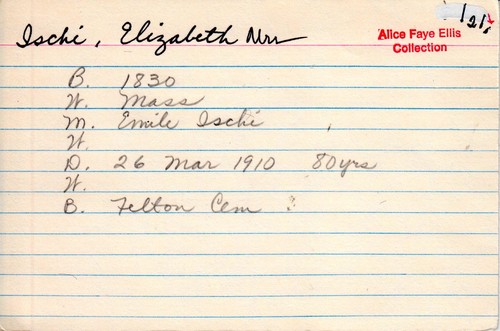 Ischi, Elizabeth Mrs
Alice Faye Ellis
Collection
B. 1830
W. Mass
M. Emile Ischi
W.
D. 26 Mar 1910 80yrs
W.
B. Felton Cem ?